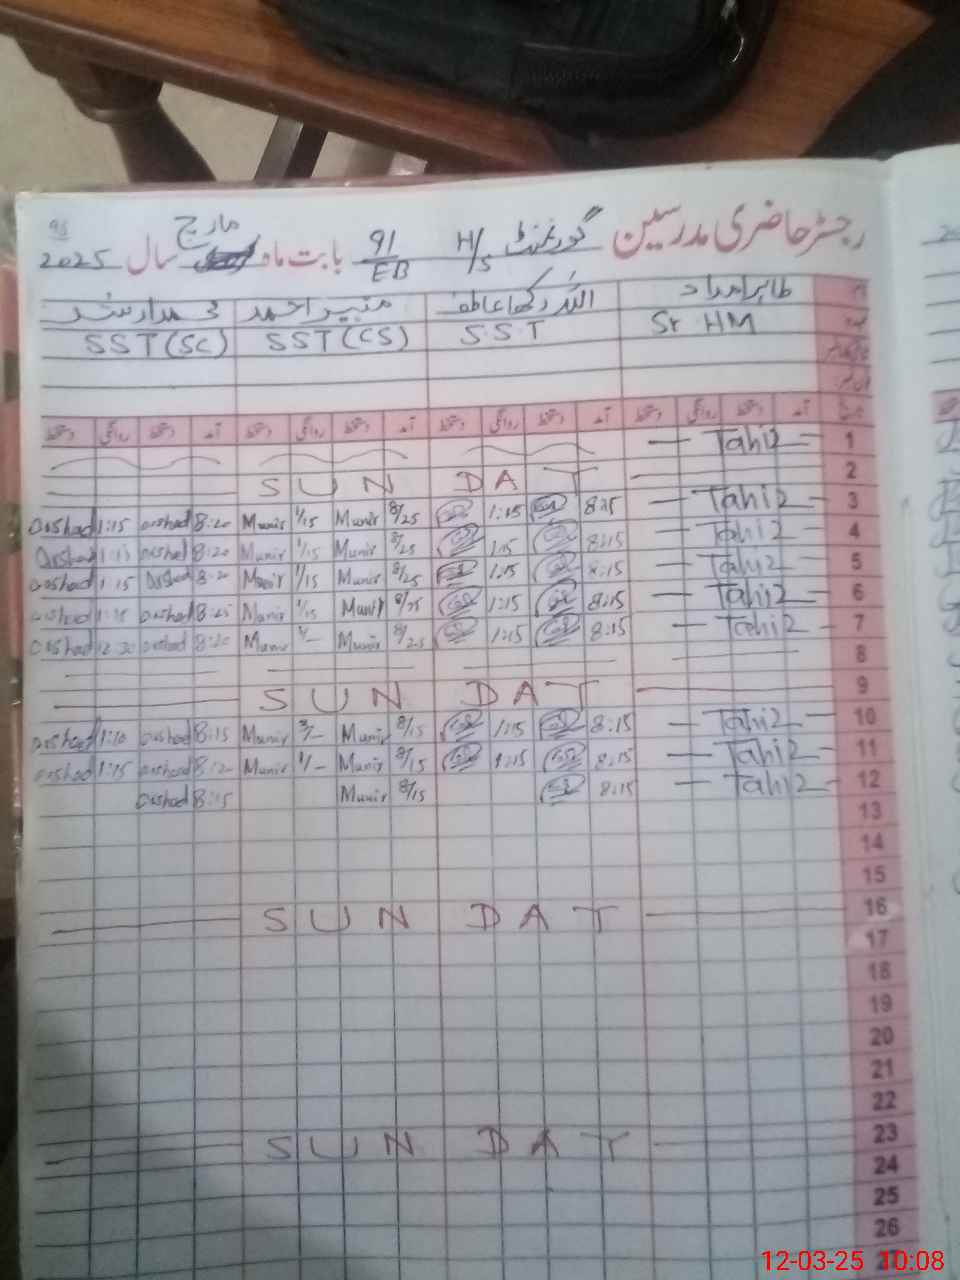 رجسٹر حاضری مدرسین گورنمنٹ H/S 91/EB بابت ماہ مارچ سال 2025
95
طاہر امداد اللہ رکھا عاطف منیر احمد محمد ارشد
Sr HM S.S.T SST (CS) SST (SC)
تاریخ آمد دستخط روانگی دستخط آمد دستخط روانگی دستخط آمد دستخط روانگی دستخط آمد دستخط روانگی دستخط
1 Tahi2
2 SUN DAT
3 Tahi2 8:15 1:15 8/25 Munir 1/15 Munir 8:20 arshad 1:15 arshad
4 Tahi2 8:15 1:15 8/25 Munir 1/15 Munir 8:20 arshad 1:15 arshad
5 Tahi2 8:15 1:15 8/25 Munir 1/15 Munir 8:20 arshad 1:15 arshad
6 Tahi2 8:15 1:15 8/25 Munir 1/15 Munir 8:25 arshad 1:15 arshad
7 Tahi2 8:15 1:15 8/25 Munir 1/- Munir 8:20 arshad 12:30 arshad
8
9 SUN DAT
10 Tahi2 8:15 1:15 8/15 Munir Munir 8:15 arshad 1:10 arshad
11 Tahi2 8:15 1:15 8/15 Munir 1/- Munir 8:20 arshad 1:15 arshad
12 Tahi2 8:15 8/15 Munir 8:15 arshad
13
14
15
16 SUN DAT
17
18
19
20
21
22
23 SUN DAT
24
25
26
27
12-03-25 10:08